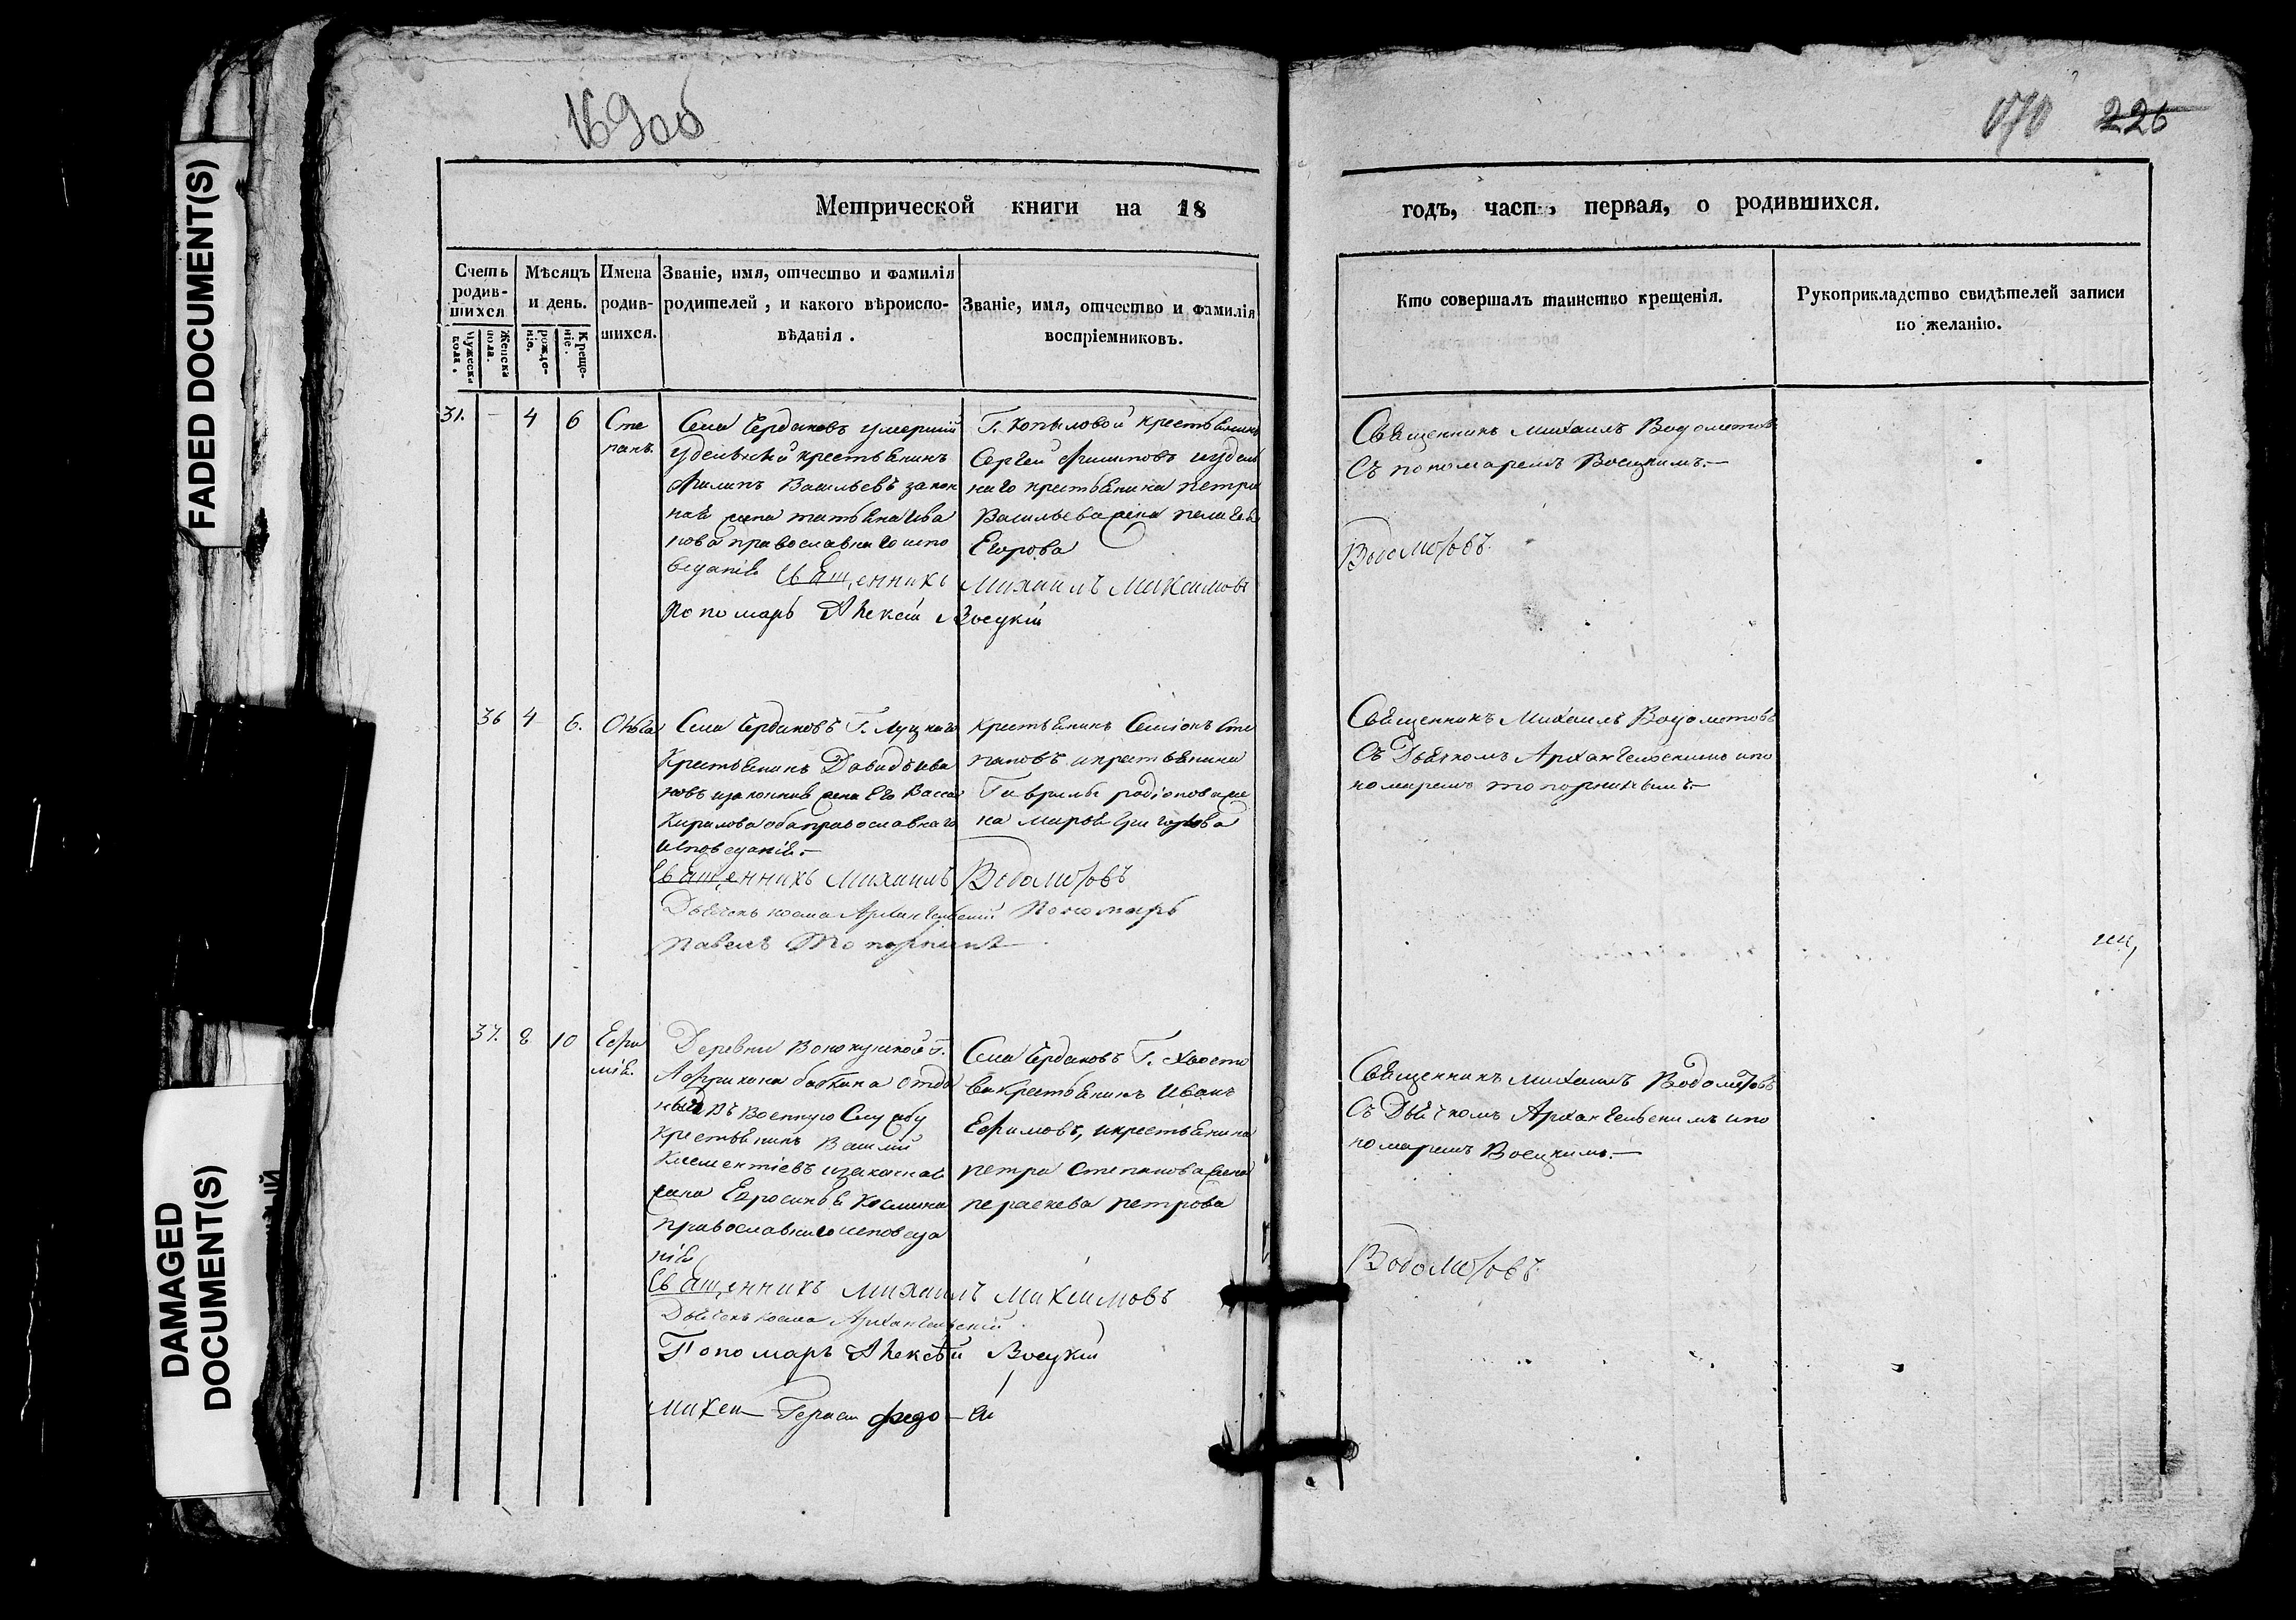 FADED DOCUMENT(S)
DAMAGED
DOCUMENT(S)
169об
170 226
Метрической книги на 18
годъ, часть, первая, о родившихся.
Счетъ родив-шихся
Мужеска пола.
Женска пола.
Мѣсяцъ и день.
рожде-нія.
Креще-нія.
Имена родив-шихся.
Званіе, имя, отчество и фамилія
родителей, и какого вѣроиспо-
вѣданія.
Званіе, имя, отчество и фамилія
воспріемниковъ.
Кто совершалъ таинство крещенія.
Рукоприкладство свидѣтелей записи
по желанію.
31. - 4 6 Сте
панъ
Села Чердаковъ умершій
удельный крестьянинъ
Филипъ Васильевъ закон
ная жена татьяна Ива
нова православнаго испо
веданія Священникъ Михаилъ Максимовъ
Пономарь Алексей Воецкій
Г. Копыловой крестьянинъ
Сергей Филиповъ иудель
наго крестьянина петра
Васильева жена пелагея
Егорова
Священникъ Михаилъ Водометовъ
Съ пономаремъ Воецкимъ.-
Водометовъ.
36 4 6. Ольга
Села Чердаковъ Г. Луцкаго
Крестьянинъ Давидъ Ива
новъ изаконная жена Его Васса
Кирилова оба православнаго
исповеданія.-
Священникъ Михаилъ Водометовъ
Дьячекъ косма Архангельский Пономарь
павелъ Топорнинъ
крестьянинъ Семіонъ Сте
пановъ икрестьянина
Гаврилы родіонова же
на Марья Григорьева
Священникъ Михаилъ Водометовъ
Съ Дьячкомъ Архангельскимъ ипо
номаремъ топорнинымъ.-
37. 8 10 Ефи
мія.
Деревни
бабкина отдан
ный въ военную Службу
крестьянинъ Василий
Клементіевъ изаконная
жена Евросинья Космина
православнаго исповеда
нія
Священникъ михаилъ максимовъ
Дьячекъ косма Архангельскій
Пономарь Алексѣй Воецкій
Села Чердаковъ Г. Хвосто
ва крестьянинъ Иванъ
Ефимовъ, икрестьянина
петра Степанова жена
пераскева петрова
Священникъ михаилъ Водометовъ
Съ Дьячкомъ Архангельскимъ ипо
номаремъ Воецкимъ.-
Водометовъ.